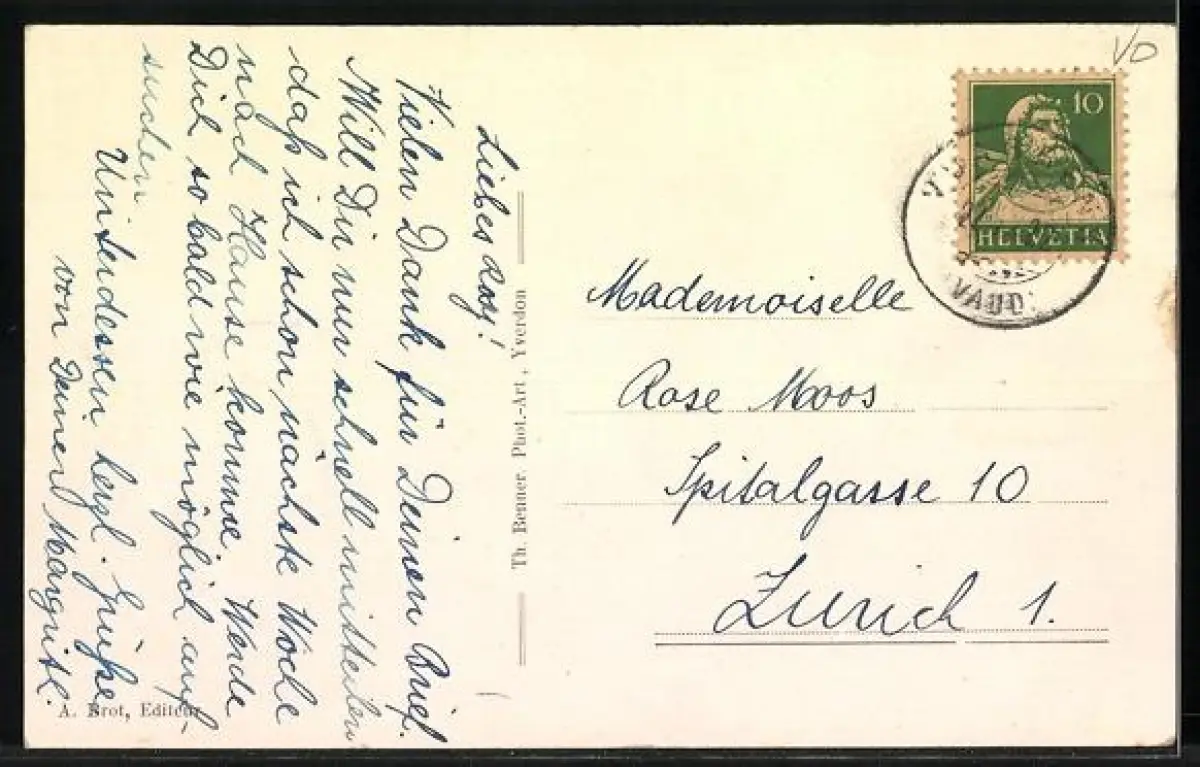 Liebes Rosy!
Vielen Dank für Deinen Brief.
Will Dir nur schnell mitteilen
daß ich schon nächste Woche
nach Hause komme. Werde
Dich so bald wie möglich auf-
suchen
Unterdessen herzl. Grüße
von Deiner Margrit.
A. Brot, Editeur
Th. Benner, Phot.-Art, Yverdon
VD
10
HELVETIA
VAUD
Mademoiselle
Rose Moos
Spitalgasse 10
Zürich 1.